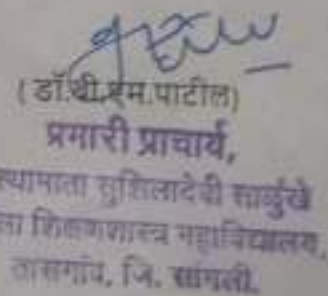 (डॉ.बी.एम.पाटील)
प्रभारी प्राचार्य,
सुशिलादेवी साळुंखे
शिक्षणशास्त्र महाविद्यालय,
तासगांव, जि. सांगली.